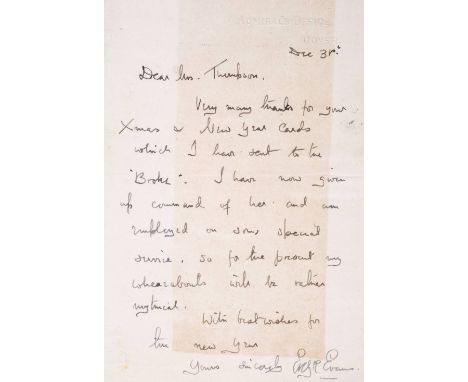 ADMIRAL'S OFFICE,
DOVER.
Dec 31st
Dear Mrs. Thompson.
Very many thanks for your
Xmas & New Year Cards
which I have sent to the
"Broke". I have now given
up command of her and am
employed on some special
service. so for the present my
whereabouts will be rather
mythical.
With best wishes for
the new year
Yours sincerely Evans.